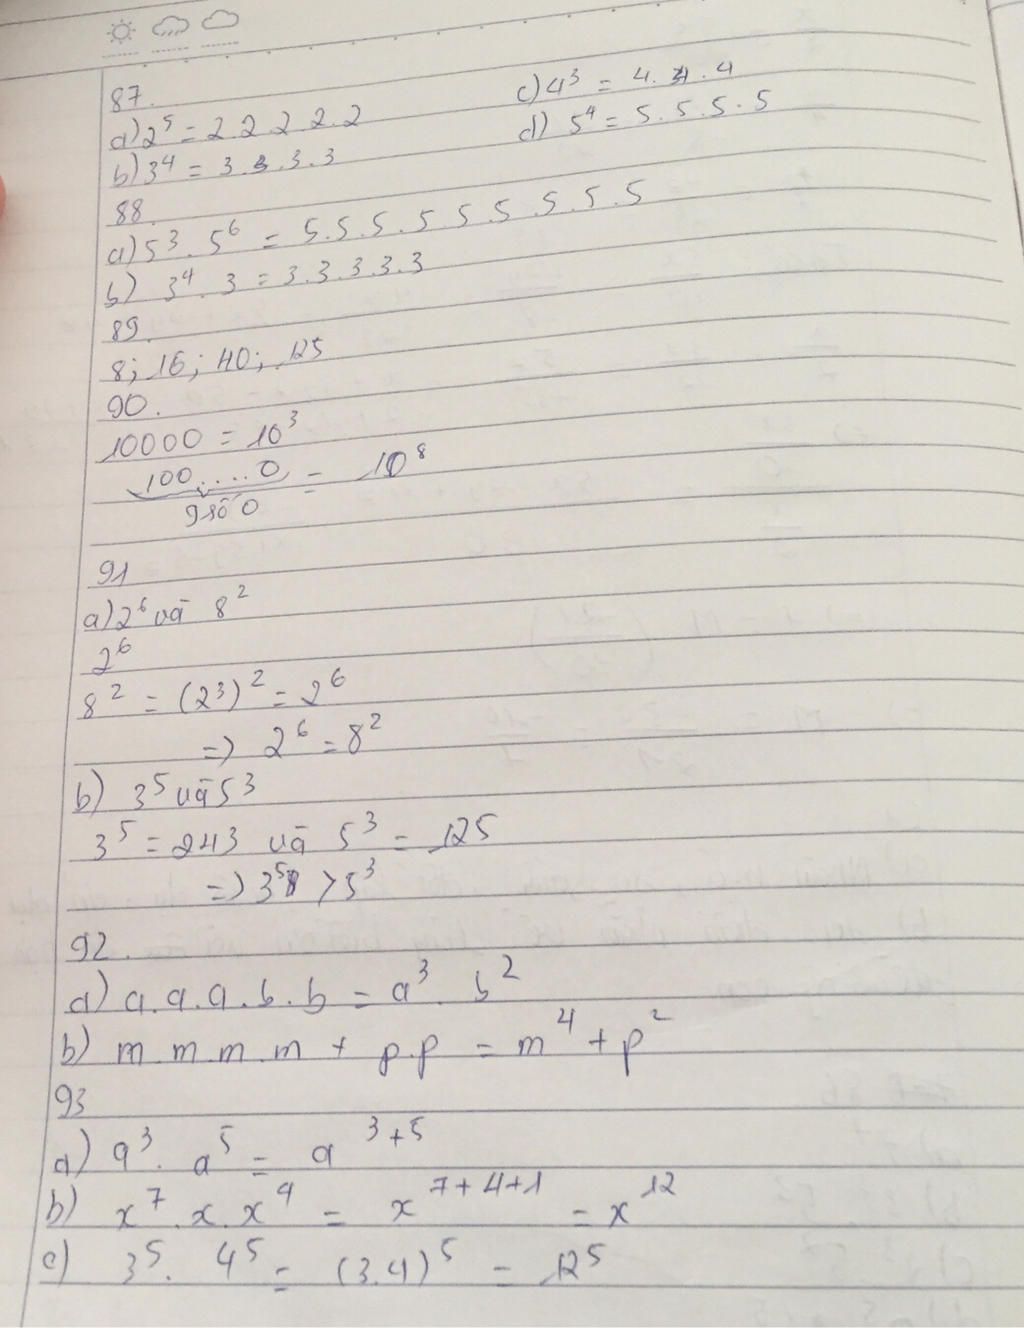 87.
a) 2⁵ = 2.2.2.2.2
b) 3⁴ = 3.3.3.3
c) 4³ = 4.4.4
d) 5⁴ = 5.5.5.5
88
a) 5³. 5⁶ = 5.5.5.5.5.5.5.5.5
b) 3⁴. 3 = 3.3.3.3.3
89.
8; 16; 40; 125
90.
10000 = 10³
100....0 = 10⁸
9 số 0
91
a) 2⁶ và 8²
2⁶
8² = (2³)² = 2⁶
=) 2⁶ = 8²
b) 3⁵ và 5³
3⁵ = 243 và 5³ = 125
=) 3⁵ > 5³
92.
a) a.a.a.b.b = a³. b²
b) m.m.m.m + p.p = m⁴ + p²
93
a) a³. a⁵ = a³⁺⁵
b) x⁷.x.x⁴ = x⁷⁺⁴⁺¹ = x¹²
c) 3⁵. 4⁵ = (3.4)⁵ = 12⁵